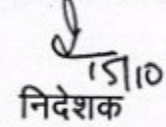 15/10
निदेशक